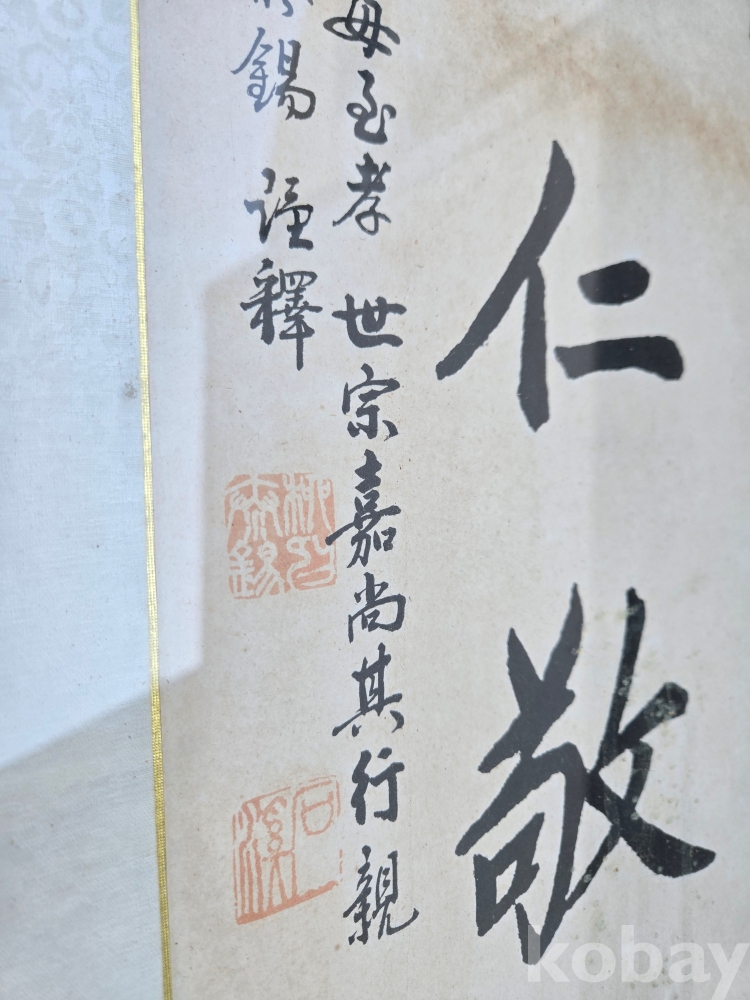 仁敬
母至孝 世宗嘉尚其行親
錫 謹釋
石溪
kobay